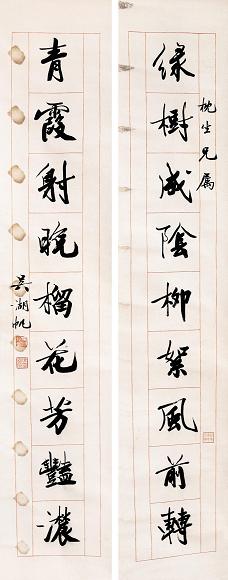 綠樹成陰柳絮風前轉
枕生兄屬
青霞射晚榴花芳豔濃
吳湖帆